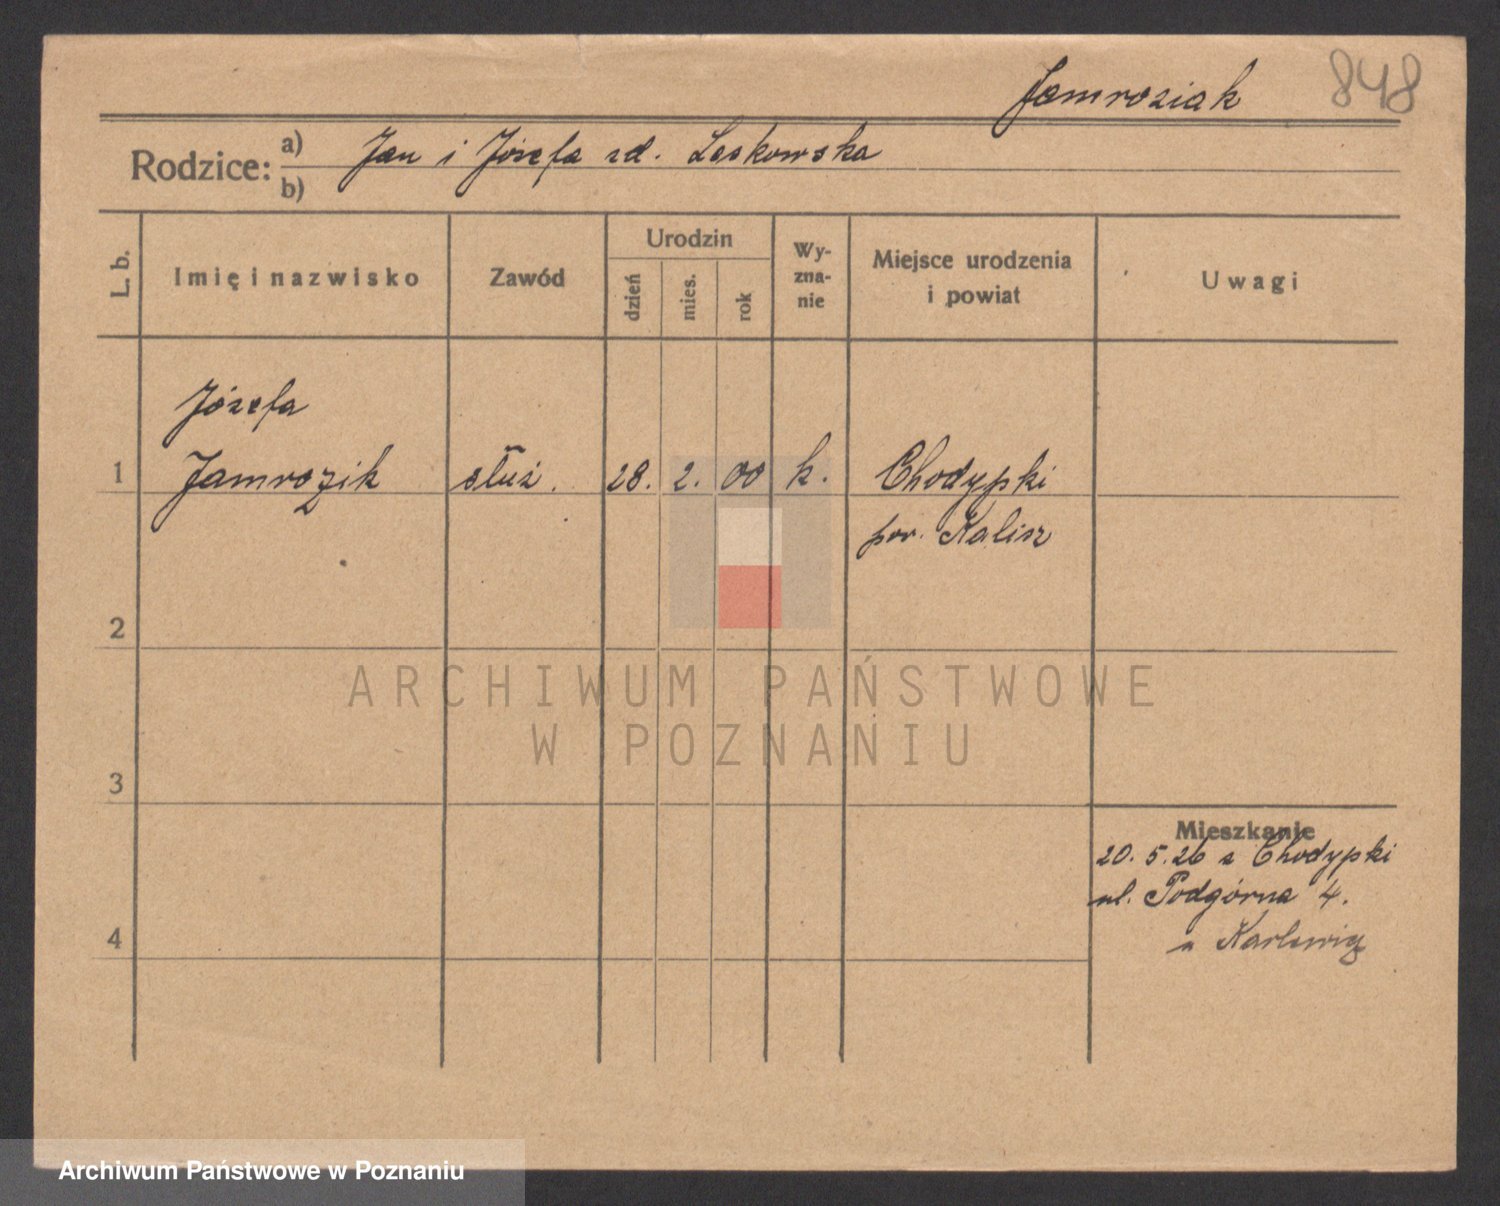 Jamroziak 848
Rodzice: a) Jan i Józefa zd. Laskowska
b)
L. b. Imię i nazwisko Zawód Urodzin dzień mies. rok Wy-zna-nie Miejsce urodzenia i powiat Uwagi
Józefa
1 Jamrozik służ. 28. 2. 00 k. Chodypki
pow. Kalisz
2
3
4
Mieszkanie
20. 5. 26 z Chodypki
ul. Podgórna 4.
ARCHIWUM PAŃSTWOWE
W POZNANIU
Archiwum Państwowe w Poznaniu